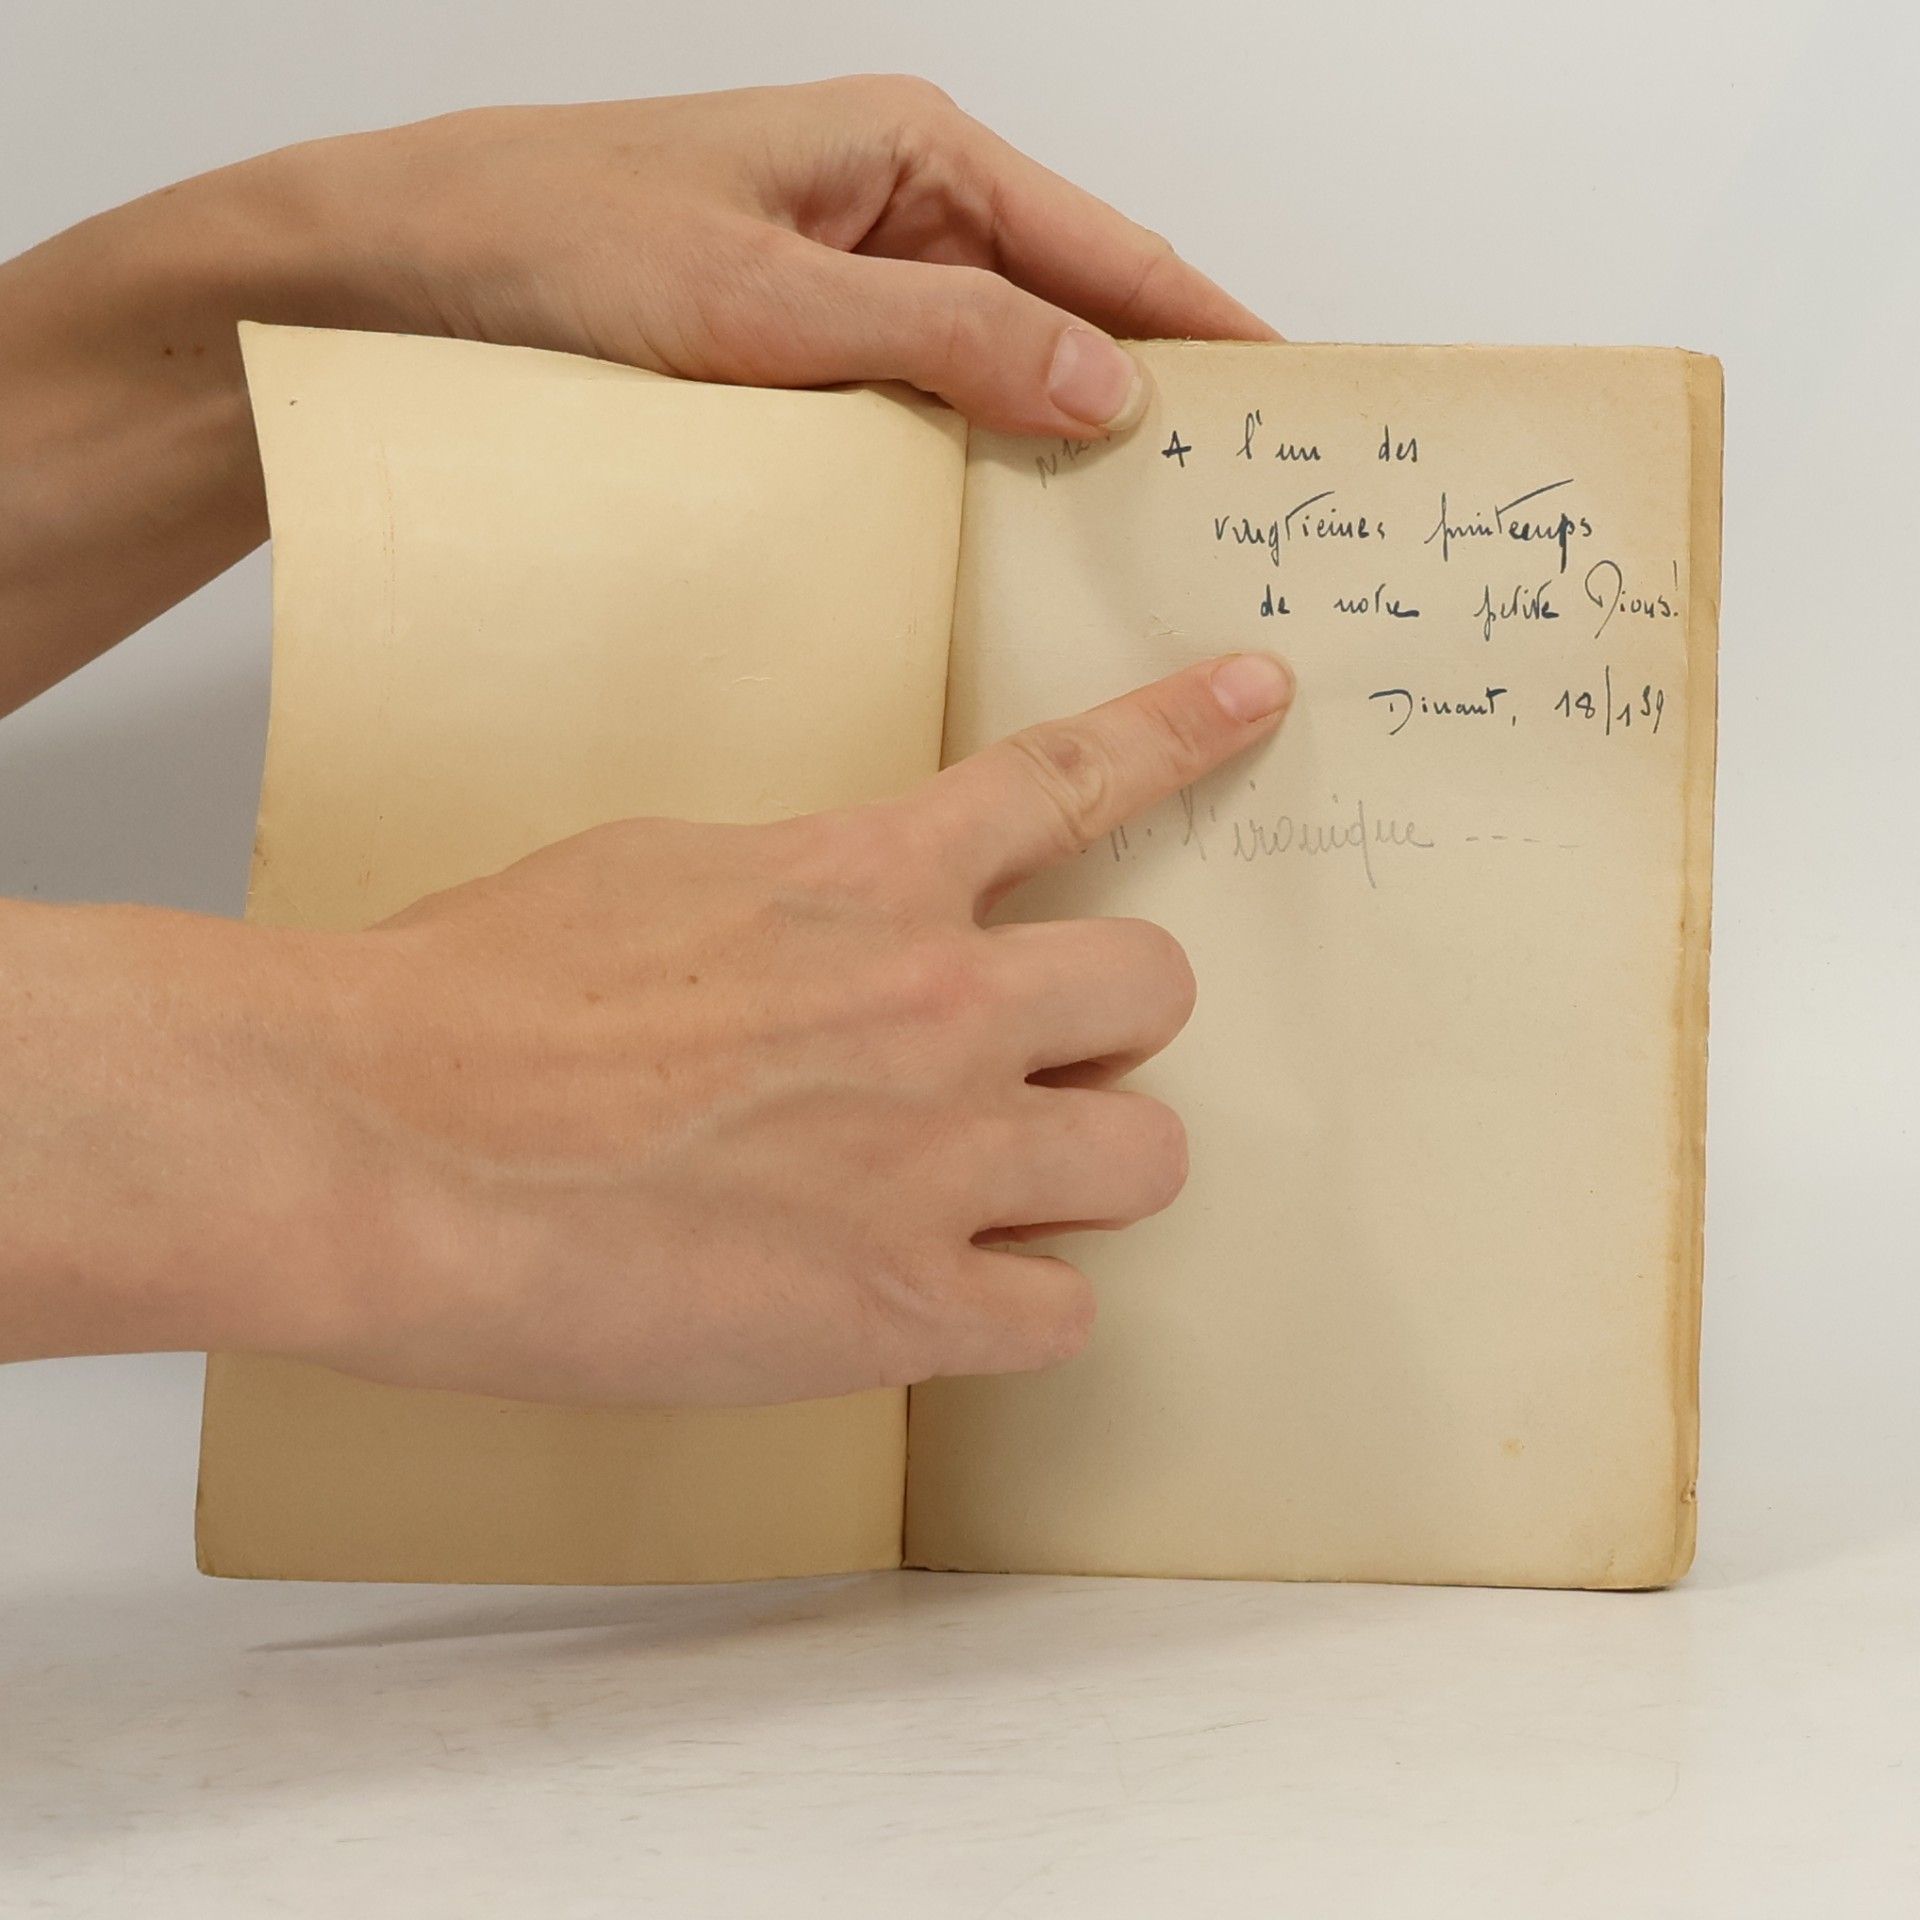 A l'un des
vingtieines printemps
de notre petite Dious!
Dinant, 18/1 39
l'ironique ----